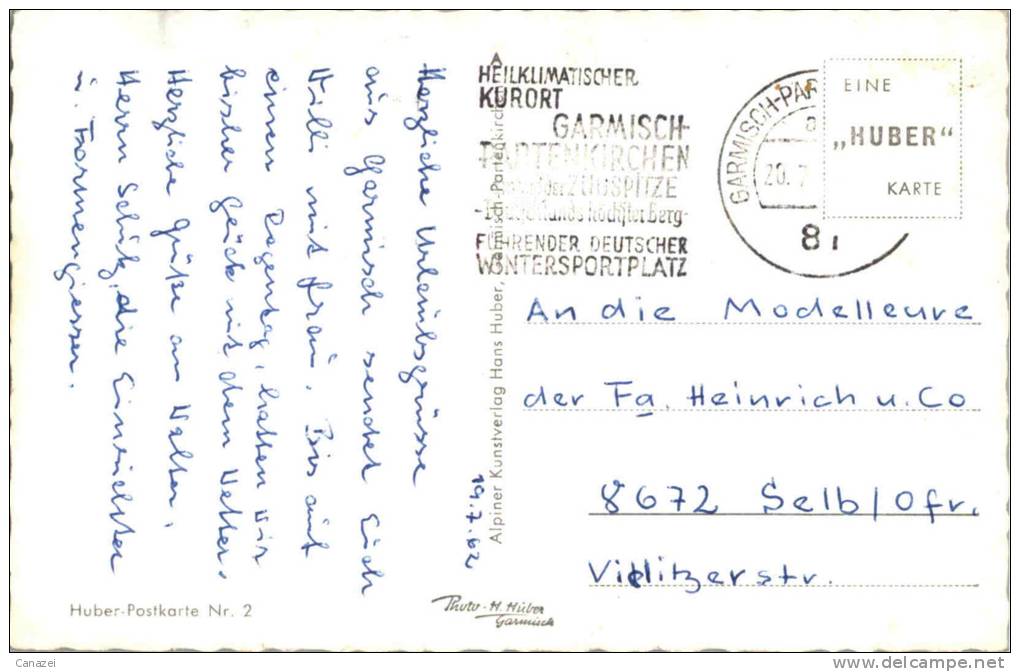 Herzliche Urlaubsgrüsse
aus Garmisch sendet Euch
Willi mit Frau. Bis auf
einen Regentag, hatten wir
bisher Glück mit dem Wetter.
Herzliche Grüße an Walter,
Herrn Schütz, die Einrichter
u. Formengiesser.
19.7.62
Huber-Postkarte Nr. 2
Photo-H. Huber
Garmisch
Alpiner Kunstverlag Hans Huber, Garmisch-Partenkirchen
HEILKLIMATISCHER
KURORT
GARMISCH-
PARTENKIRCHEN
ZUGSPITZE
-Deutschlands höchster Berg-
FÜHRENDER DEUTSCHER
WINTERSPORTPLATZ
GARMISCH-PAR
a
20.7
EINE
„HUBER“
KARTE
An die Modelleure
der Fa. Heinrich u. Co
8672 Selb/Ofr.
Vielitzerstr.
Canazei
www.delcampe.net